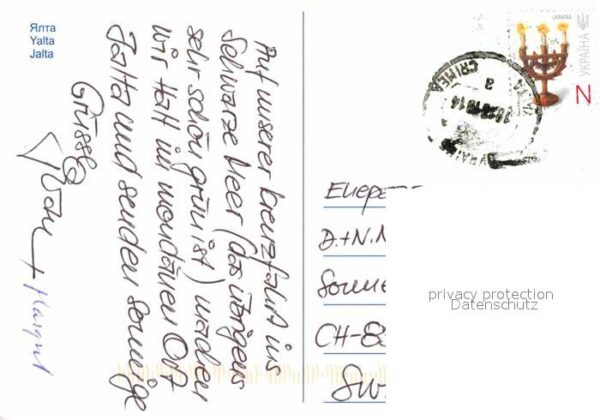 Ялта
Yalta
Jalta
Auf unserer Kreuzfahrt ins
Schwarze Meer (das übrigens
sehr schön grün ist) machen
wir Halt im mondänen Ort
Jalta und senden sonnige
Grüsse
+ Margrit
UKRAINA
УКРАЇНА
N
CRIMEA
Ehepa
D.+N.
Sonne
CH-8
privacy protection
Datenschutz